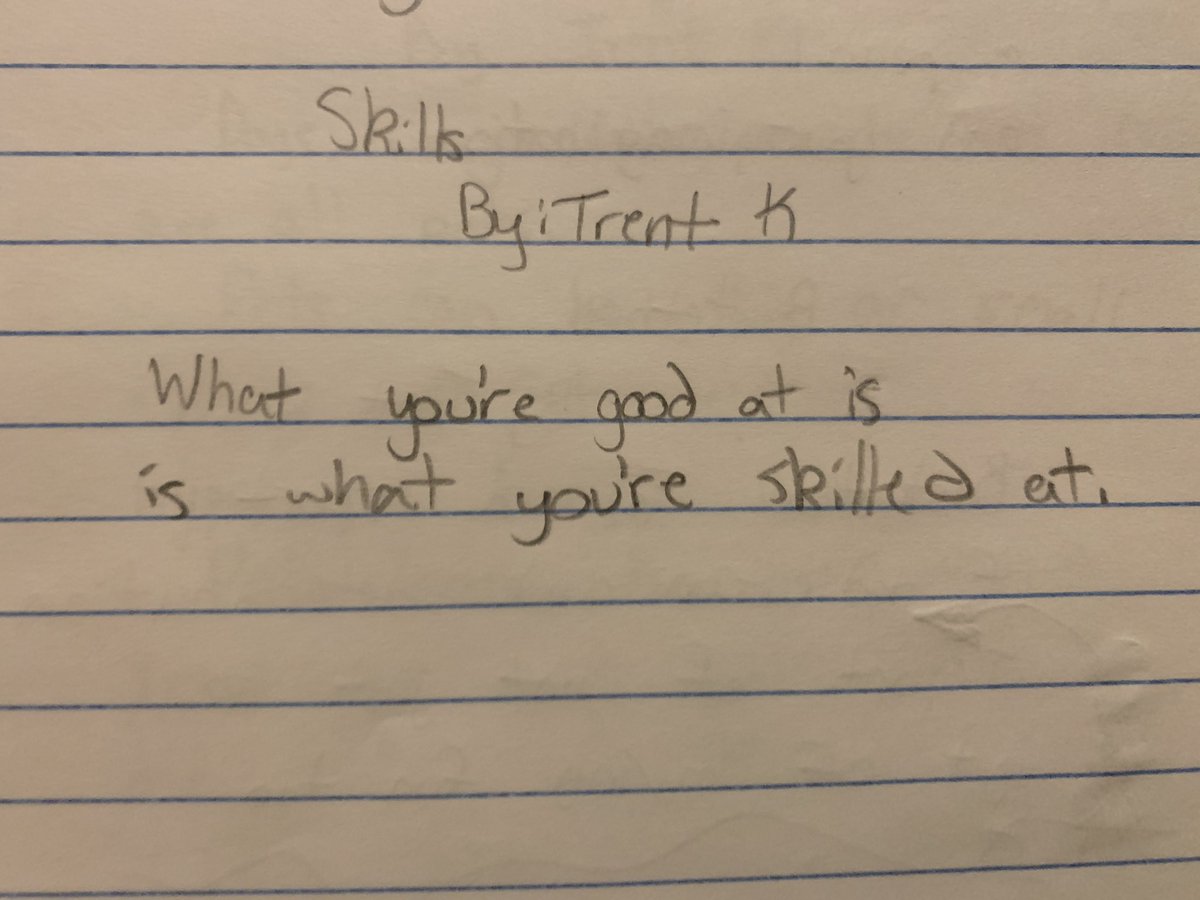 Skills
By: Trent K
What you're good at is
is what you're skilled at.